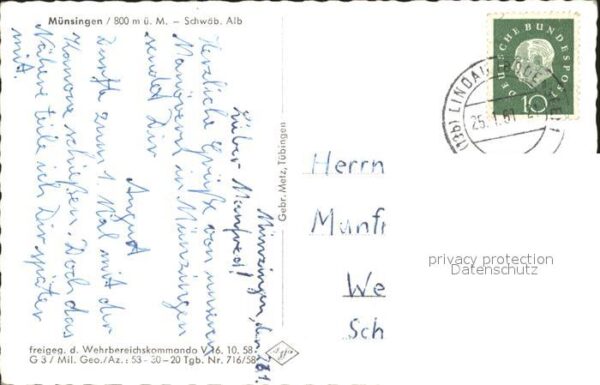 Münsingen / 800 m ü. M. – Schwäb. Alb
Münzingen, den 28.1.
Lieber Manfred!
Herzliche Grüße von unserem
Manöver in Münzingen
sendet Dir
August
Durfte zum 1. Mal mit der
Kanone schießen. Doch das
Nähere teile ich Dir später
mit.
Gebr. Metz, Tübingen
freigeg. d. Wehrbereichskommando V 16. 10. 58
G 3 / Mil. Geo./Az.: 53 - 30 - 20 Tgb. Nr. 716/58
DEUTSCHE BUNDESPOST
10
(13b) LINDAU (BODENSEE)
25.1.61
Herrn
Manf
We
Sch
privacy protection
Datenschutz